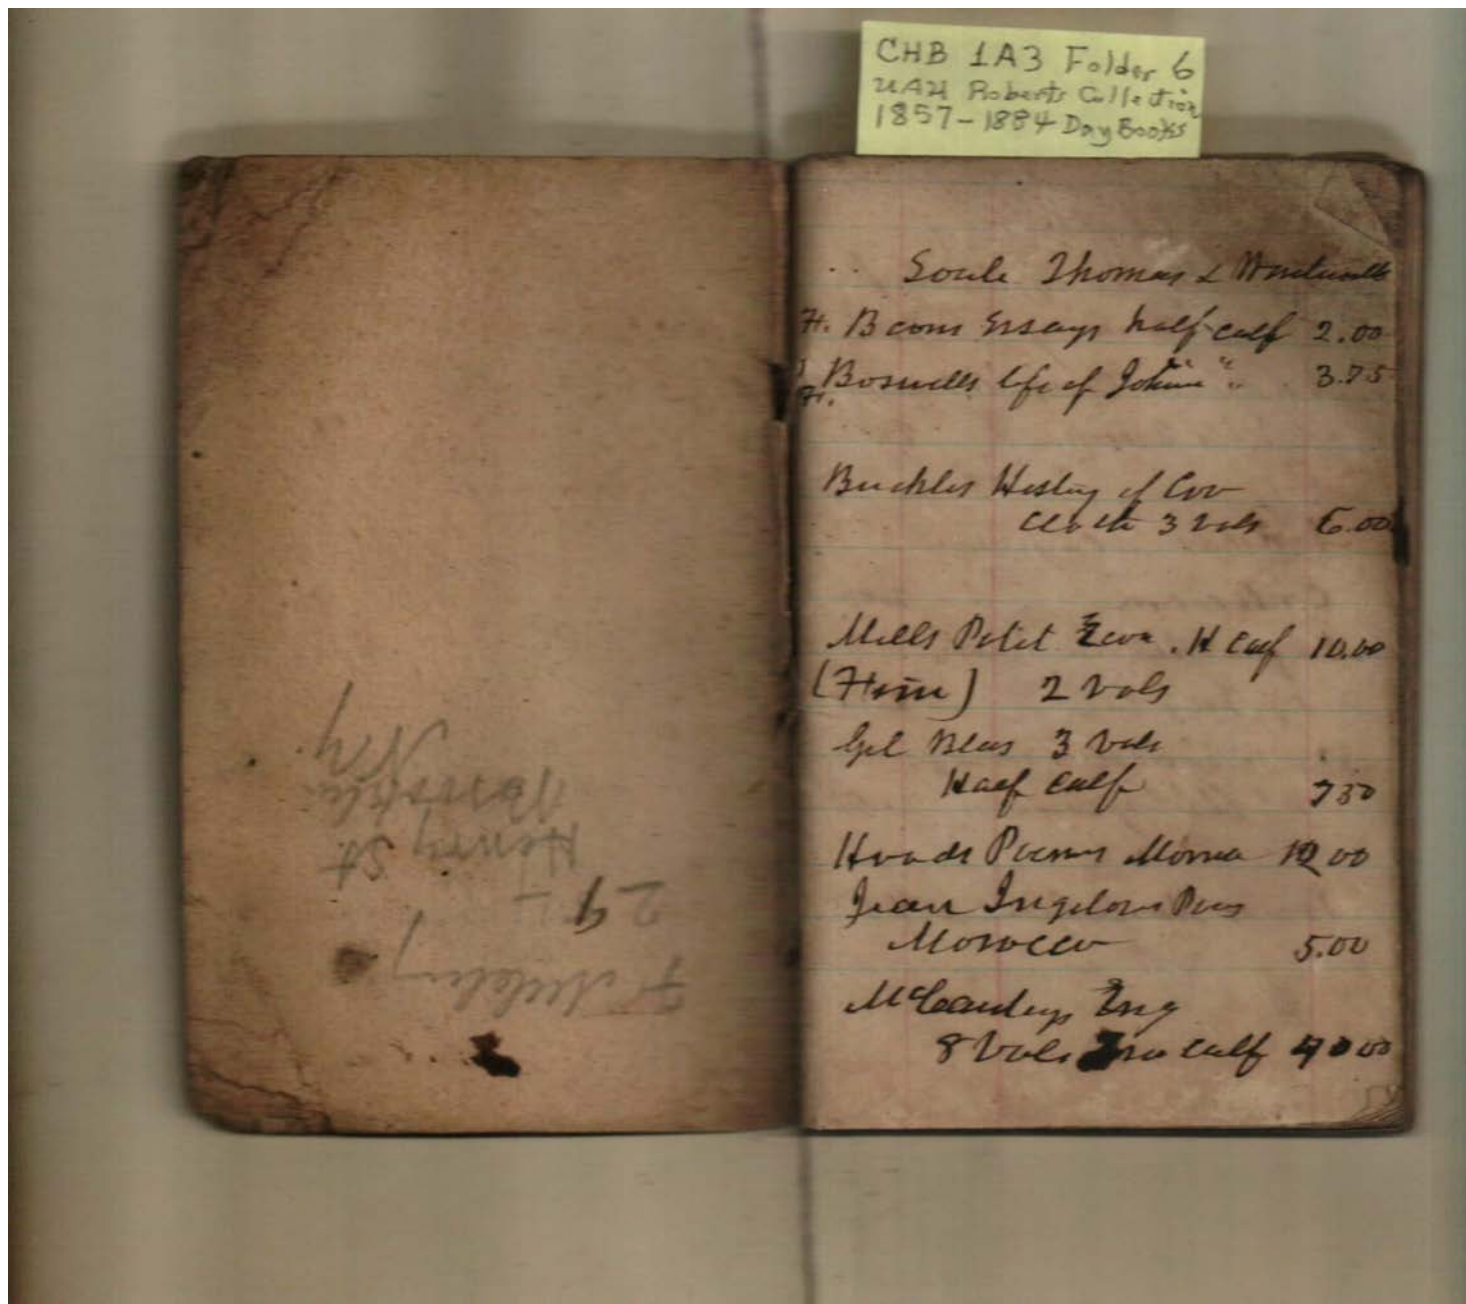 CHB 1A3 Folder 6
UAH Roberts Collection
1857-1884 Day Books
29
Henry St.
N Y
Soule Thomas & Wentworth
H. Bacons Essays half calf 2.00
H. Boswells life of Johns " " 3.75
Buckles History of Civ
Cloth 3 Vols 6.00
Mills Polit Econ. H Calf 10.00
2 Vols
Gil Blas 3 Vols
Half Calf 7 50
Hoods Poems Moroc 12 00
Jean Ingelows Poems
Morocco 5.00
McCauleys Eng
8 Vols calf 40 00